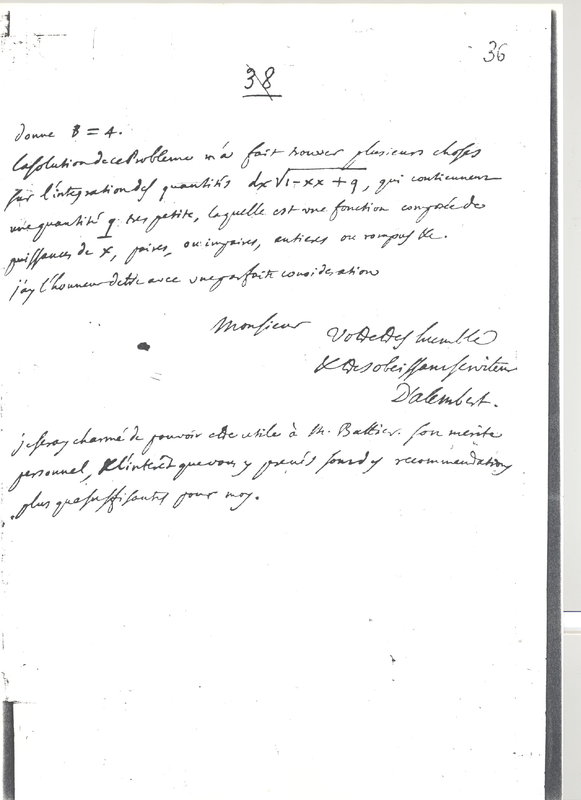 36
38
donne B = 4.
la solution de ce Probleme m'a fait trouver plusieurs choses
sur l'integration des quantités dx√1-xx+q, qui contiennent
une quantité q tres petite, laquelle est une fonction composée de
puissances de x, paires, ou impaires, entieres ou rompus &c.
j'ay l'honneur d'etre avec une parfaite consideration
Monsieur
Votre tres humble
& tres obeissant serviteur
D'alembert.
je seray charmé de pouvoir etre utile à M. Battier. son merite
personnel, & l'interêt que vous y prenés sont des recommendations
plus que suffisantes pour moy.